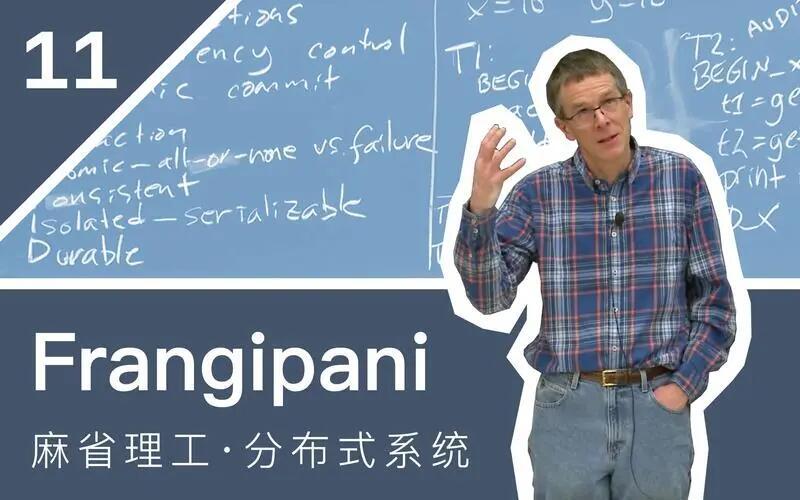 11
ency control
commit
omic-all-or-none vs. failure
onsistent
Isolated - serializable
Durable
x=10 y=10
T1:
BEGIN
T2:
BEGIN_X
t1=ge
t2=ge
print
Frangipani
麻省理工·分布式系统